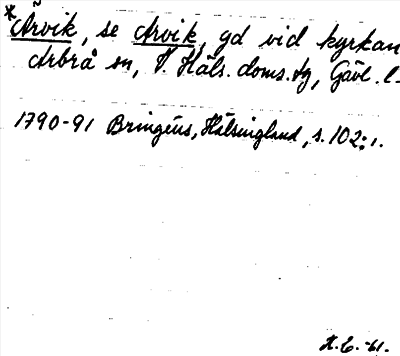 *Årvik, se Arvik, gd vid kyrkan
Arbrå sn, V. Häls. doms.tg, Gävl. l.
1790-91 Bringéus, Hälsingland, s. 102:1.
H.E. -61.